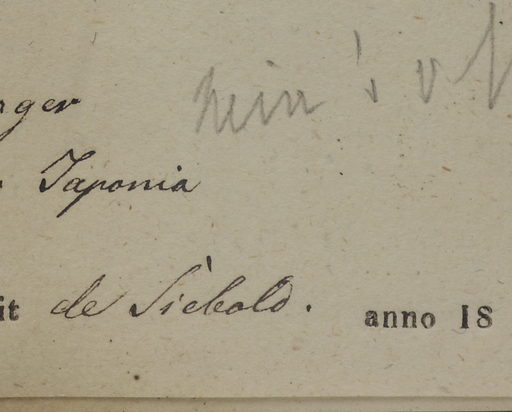 rger
Japonia
it de Siebold. anno 18